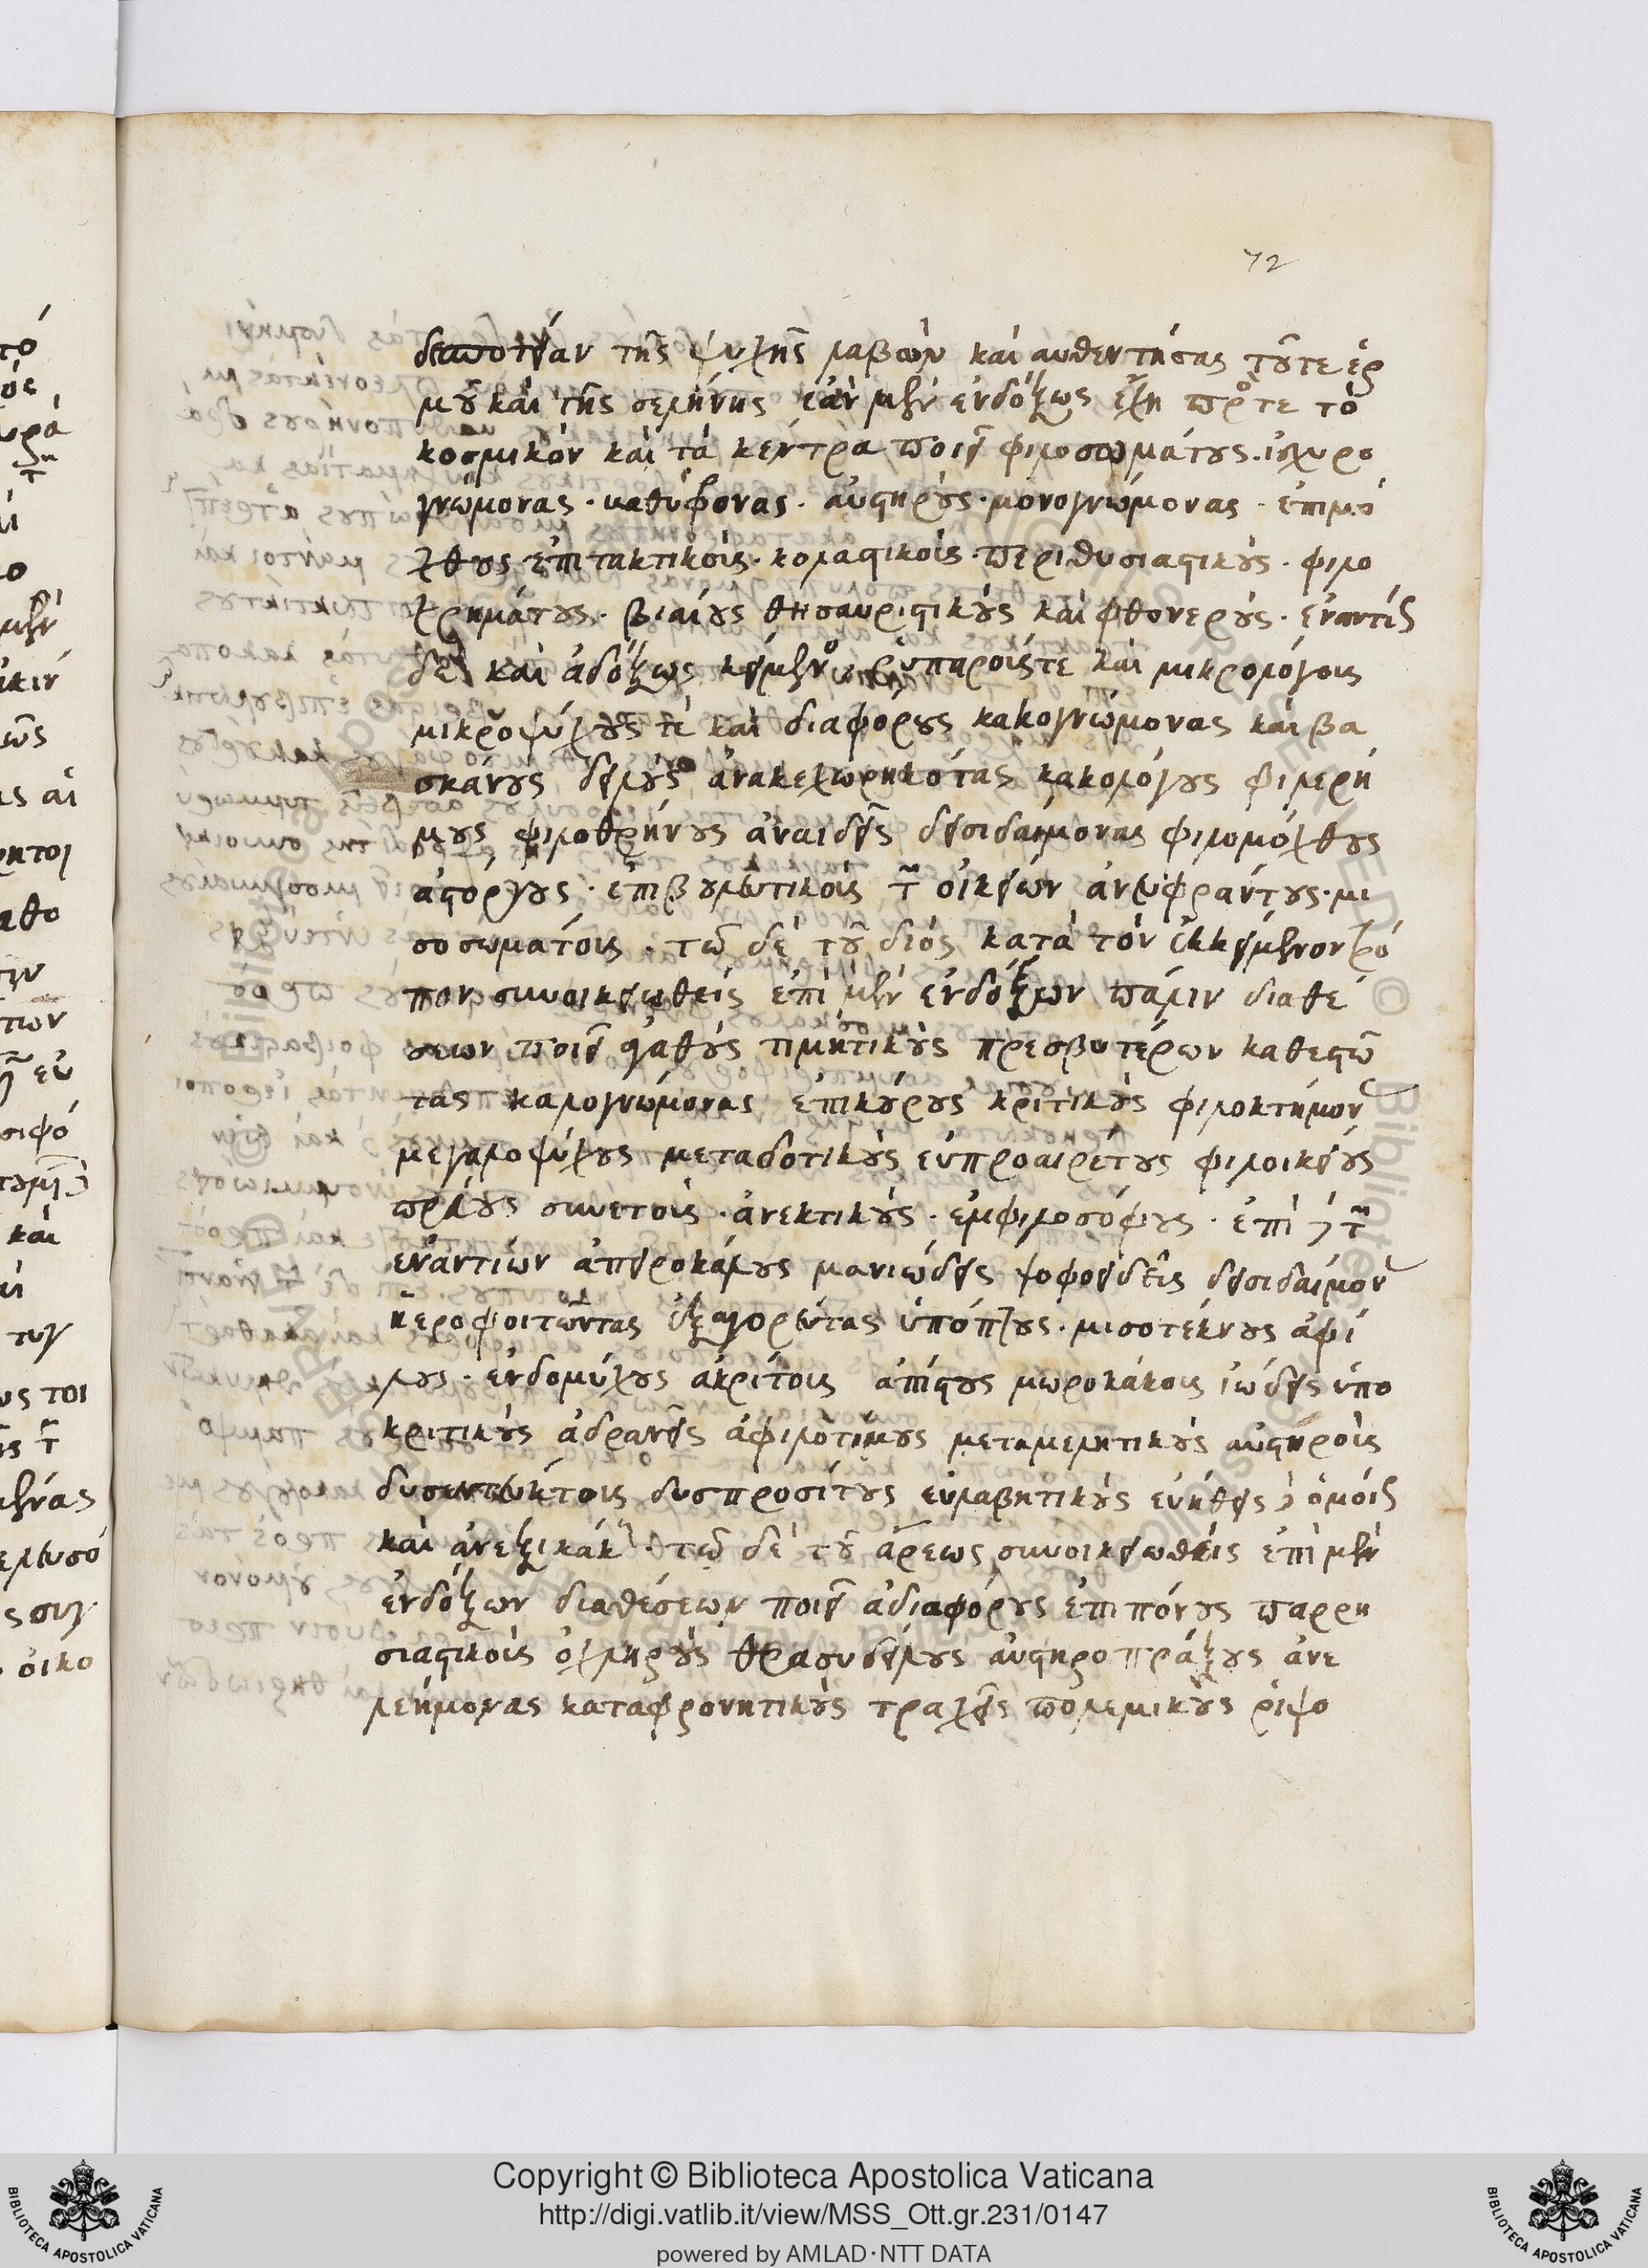 72
δεσποτείαν τῆς ψυχῆς λαβὼν καὶ αυθεντήσας τοῦτε ἑρ
μοῦ καὶ τῆς σελήνης ἐὰν μὲν ἐνδόξως ἔχη πρὸς τε τὸ
κοσμικὸν καὶ τὰ κέντρα ποιεῖ φιλοσωμάτους. ἰσχυρο
γνώμονας · βαθύφρονας · αὐστηροὺς · μονογνώμονας · ἐπιμό
χθους · ἐπιτακτικοὺς · κολαστικοὺς · περιουσιαστικοὺς · φιλο
χρημάτους · βιαίους θησαυριστικοὺς καὶ φθονερούς · ἐναντίως
δὲ καὶ ἀδόξως κείμενος ῥυπαρούς τε καὶ μικρολόγους
μικροψύχους τὲ καὶ διαφόρους κακογνώμονας καὶ βα
σκάνους δειλοὺς ἀνακεχωρηκότας κακολόγους φιλερή
μους φιλοθρήνους ἀναιδεῖς δεισιδαίμονας φιλομόχθους
ἀστόργους · ἐπιβουλευτικοὺς τῶν οἰκείων ἀνευφράντους · μι
σοσωμάτους · τῶ δὲ τοῦ διὸς κατὰ τὸν ἐκκείμενον τρό
πον συνοικειωθεὶς ἐπὶ μὲν ἐνδόξων πάλιν διαθέ
σεων ποιεῖ ἀγαθοὺς τιμητικοὺς πρεσβυτέρων καθεστῶ
τας καλογνώμονας ἐπικούρους κριτικοὺς φιλοκτήμον
μεγαλοψύχους μεταδοτικοὺς εὐπροαιρέτους φιλοικείους
πράους συνετοὺς · ἀνεκτικοὺς · ἐμφιλοσόφους · ἐπὶ δὲ τῶν
ἐναντίων ἀπειροκάλους μανιώδεις ψοφοειδεῖς δεισιδαίμον
ἱεροφοιτῶντας ἐξαγορευτὰς ὑπόπτους · μισοτέκνους ἀφί
λους · ἐνδομύχους ἀκρίτους ἀπίστους μωροκάκους ἰώδεις ὑπο
κριτικοὺς ἀδρανεῖς ἀφιλοτίμους μεταμελητικοὺς αὐστηροὺς
δυσεντεύκτους δυσπροσίτους εὐλαβητικοὺς εὐήθεις δὲ ὁμοίως
καὶ ἀνεξικάκ · τῶ δὲ τοῦ ἄρεως συνοικειωθεὶς ἐπὶ μὲν
ἐνδόξων διαθέσεων ποιεῖ ἀδιαφόρους ἐπιπόνους παρρη
σιαστικοὺς ὀχληροὺς θρασυδείλους αὐστηροπράξους ἀνε
λεήμονας καταφρονητικοὺς τραχεῖς πολεμικοὺς ῥιψο
Copyright © Biblioteca Apostolica Vaticana
http://digi.vatlib.it/view/MSS_Ott.gr.231/0147
powered by AMLAD·NTT DATA
BIBLIOTECA APOSTOLICA VATICANA
BIBLIOTECA APOSTOLICA VATICANA